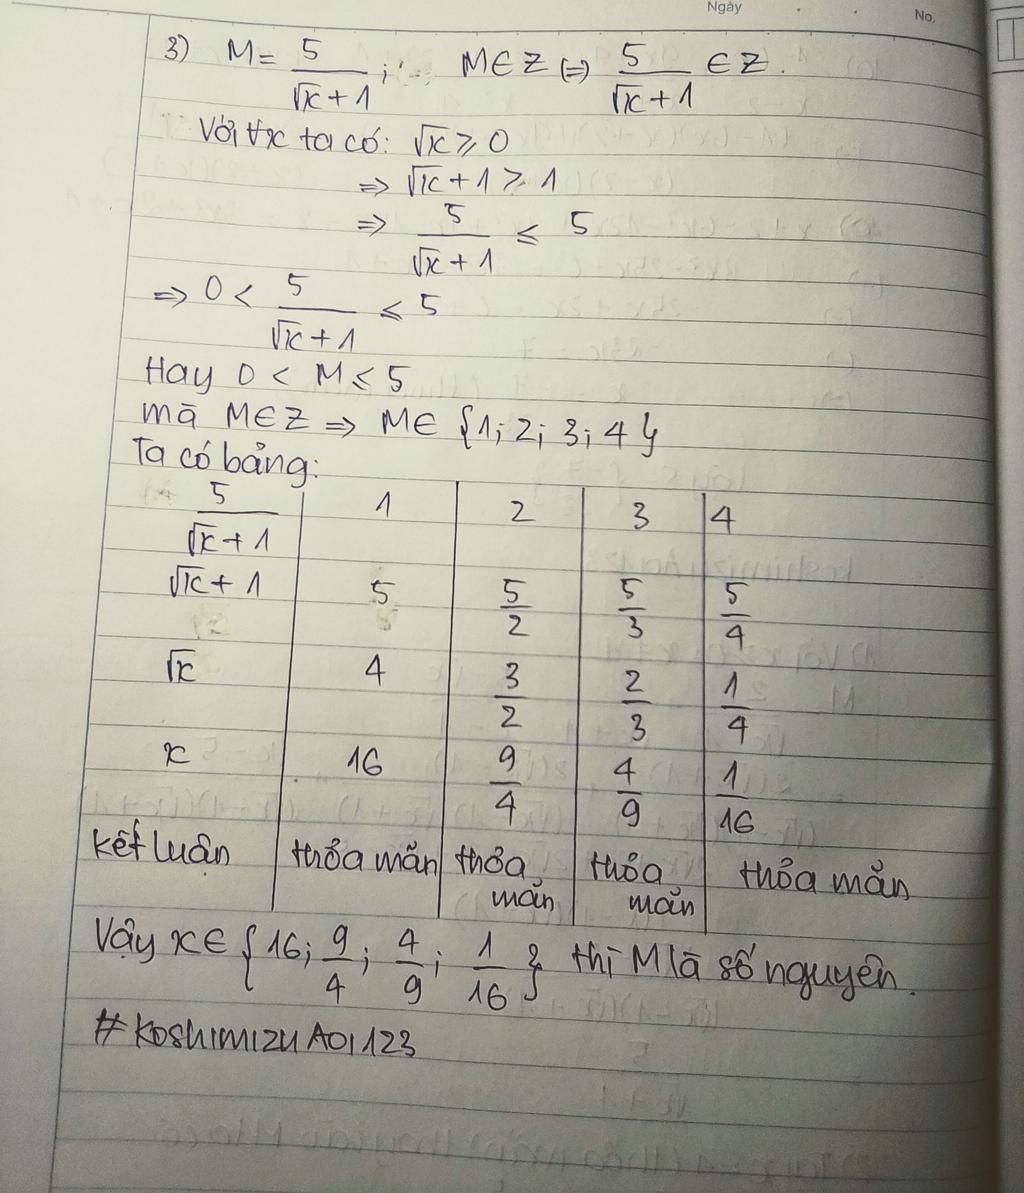 Ngày
No.
3) M = 5/(√x + 1); M ∈ Z (=) 5/(√x + 1) ∈ Z.
Với ∀x ta có: √x ⩾ 0
=> √x + 1 ⩾ 1
=> 5/(√x + 1) ⩽ 5
=> 0 < 5/(√x + 1) ⩽ 5
Hay 0 < M ⩽ 5
mà M ∈ Z => M ∈ {1; 2; 3; 4}
Ta có bảng:
5/(√x + 1) 1 2 3 4
√x + 1 5 5/2 5/3 5/4
√x 4 3/2 2/3 1/4
x 16 9/4 4/9 1/16
kết luận thỏa mãn thỏa mãn thỏa mãn thỏa mãn
Vậy x ∈ {16; 9/4; 4/9; 1/16} thì M là số nguyên.
#KoshimizuAoi123